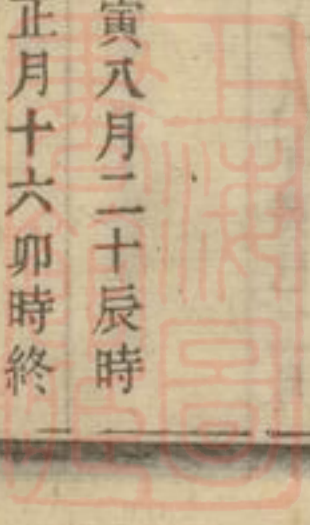 寅八月二十辰時
正月十六卯時終
上海圖